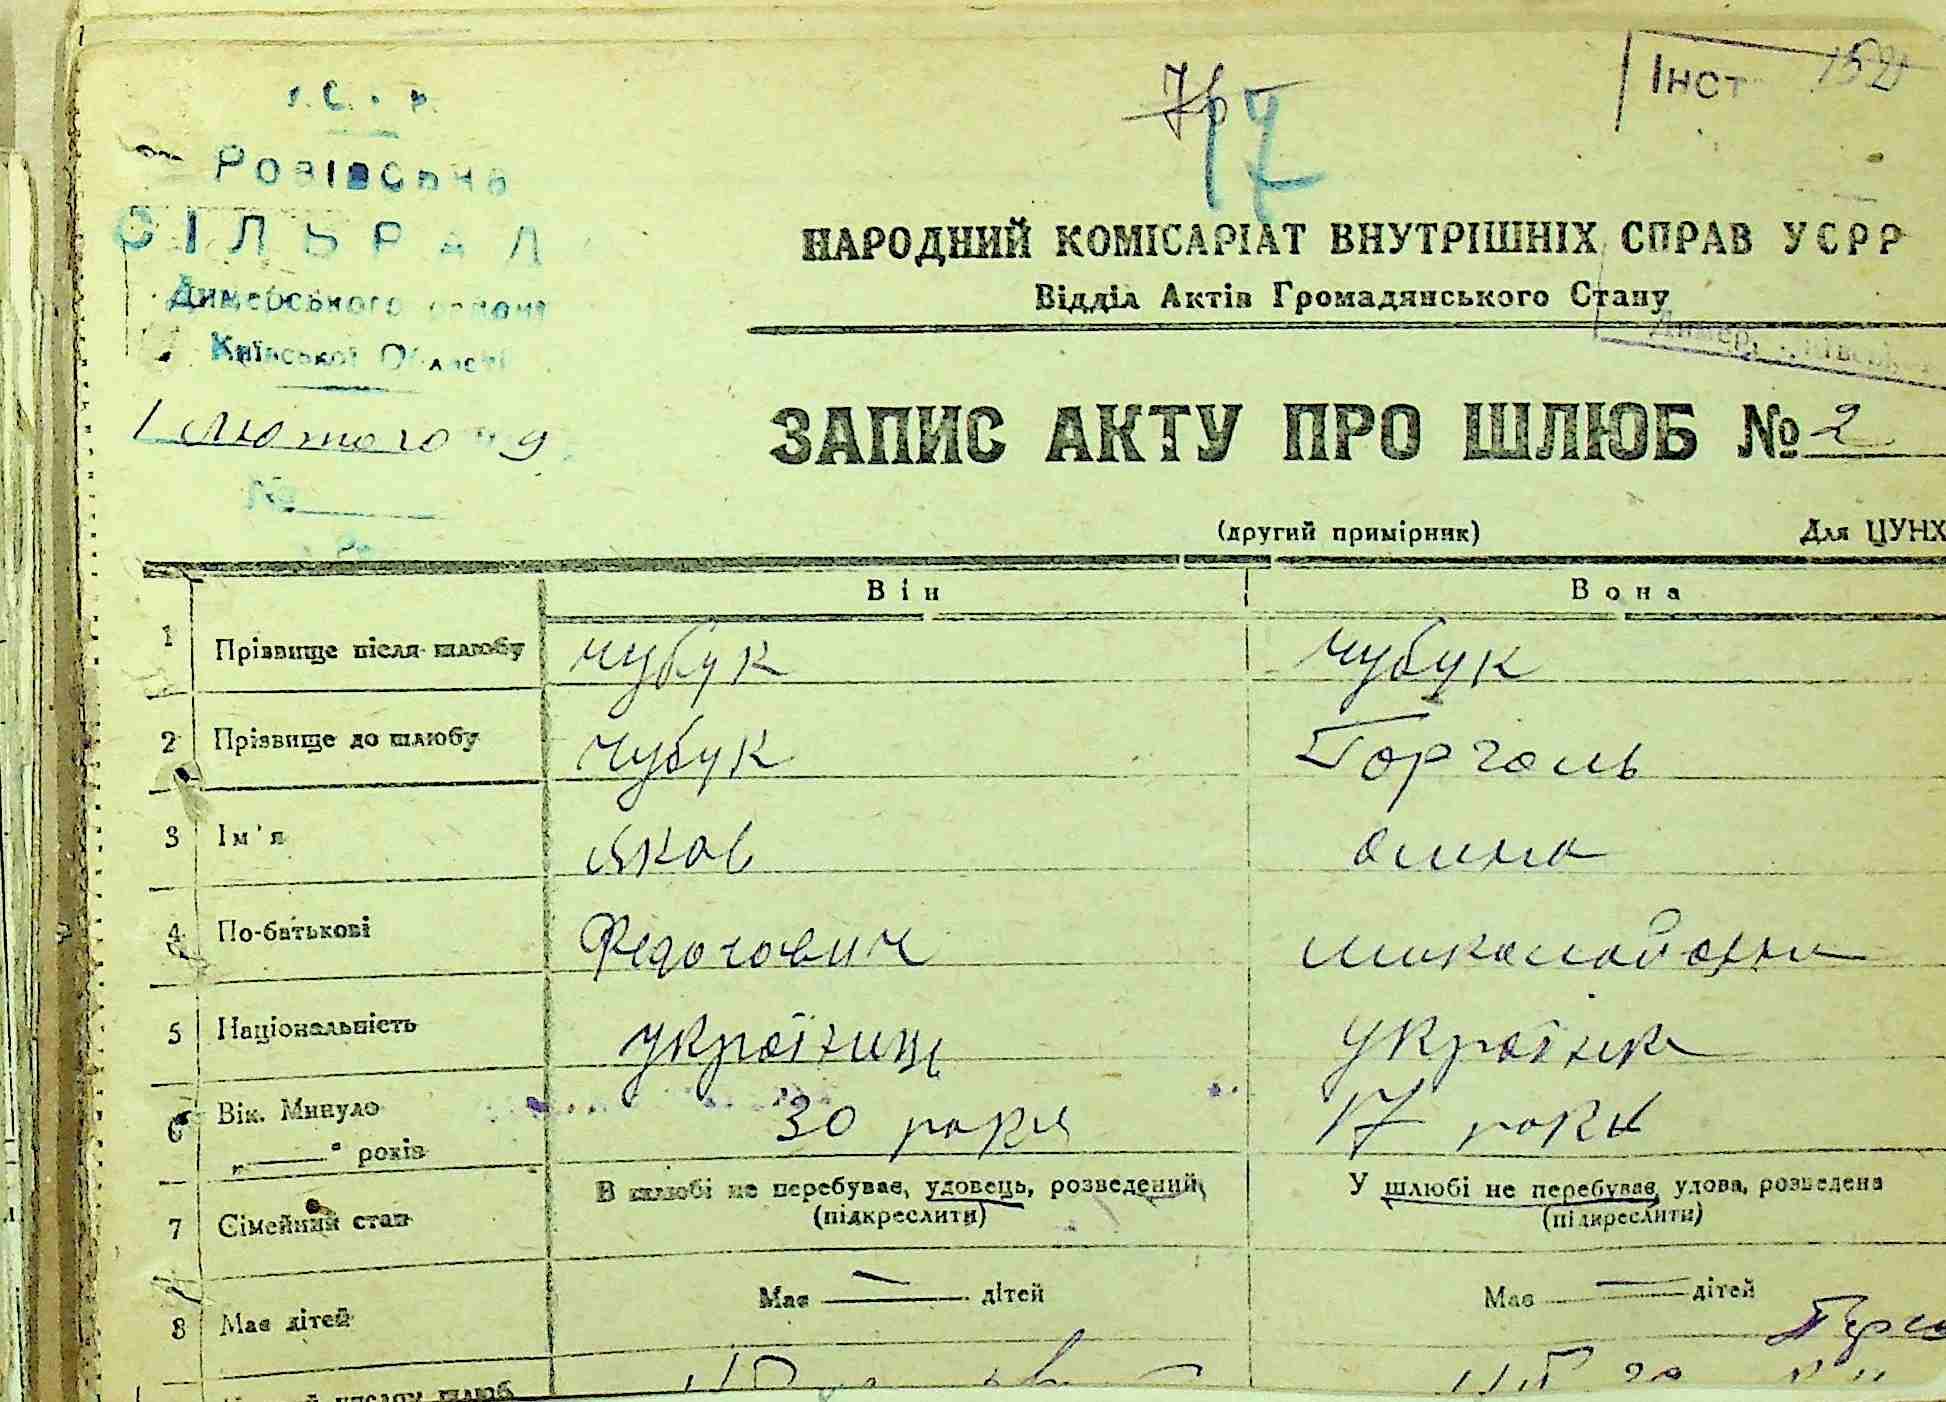 Інст
РОВІВСЬКА
СІЛЬРАД
Димерського району
Київської Області
1 лютого 9
№
НАРОДНИЙ КОМІСАРІАТ ВНУТРІШНІХ СПРАВ УСРР
Відділ Актів Громадянського Стану
ЗАПИС АКТУ ПРО ШЛЮБ № 2
(другий примірник) Для ЦУНХ
Він Вона
1 Прізвище після шлюбу чубук чубук
2 Прізвище до шлюбу чубук Горголь
3 Ім'я Яков
4 По-батькові миколаївна
5 Національність українец українка
6 Вік. Минуло „ " років 30 роки 17 роки
7 Сімейний стан В шлюбі не перебуває, удовець, розведений (підкреслити) У шлюбі не перебуває, удова, розведена (підкреслити)
8 Має дітей Має — дітей Має — дітей